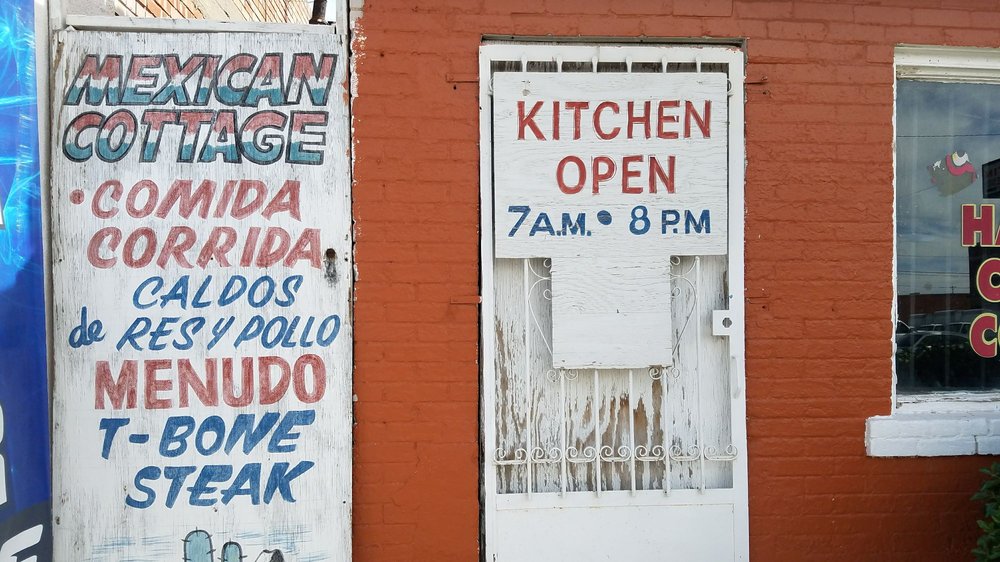 MEXICAN
COTTAGE
• COMIDA
CORRIDA
CALDOS
de RES Y POLLO
MENUDO
T-BONE
STEAK
KITCHEN
OPEN
7 A.M. • 8 P.M